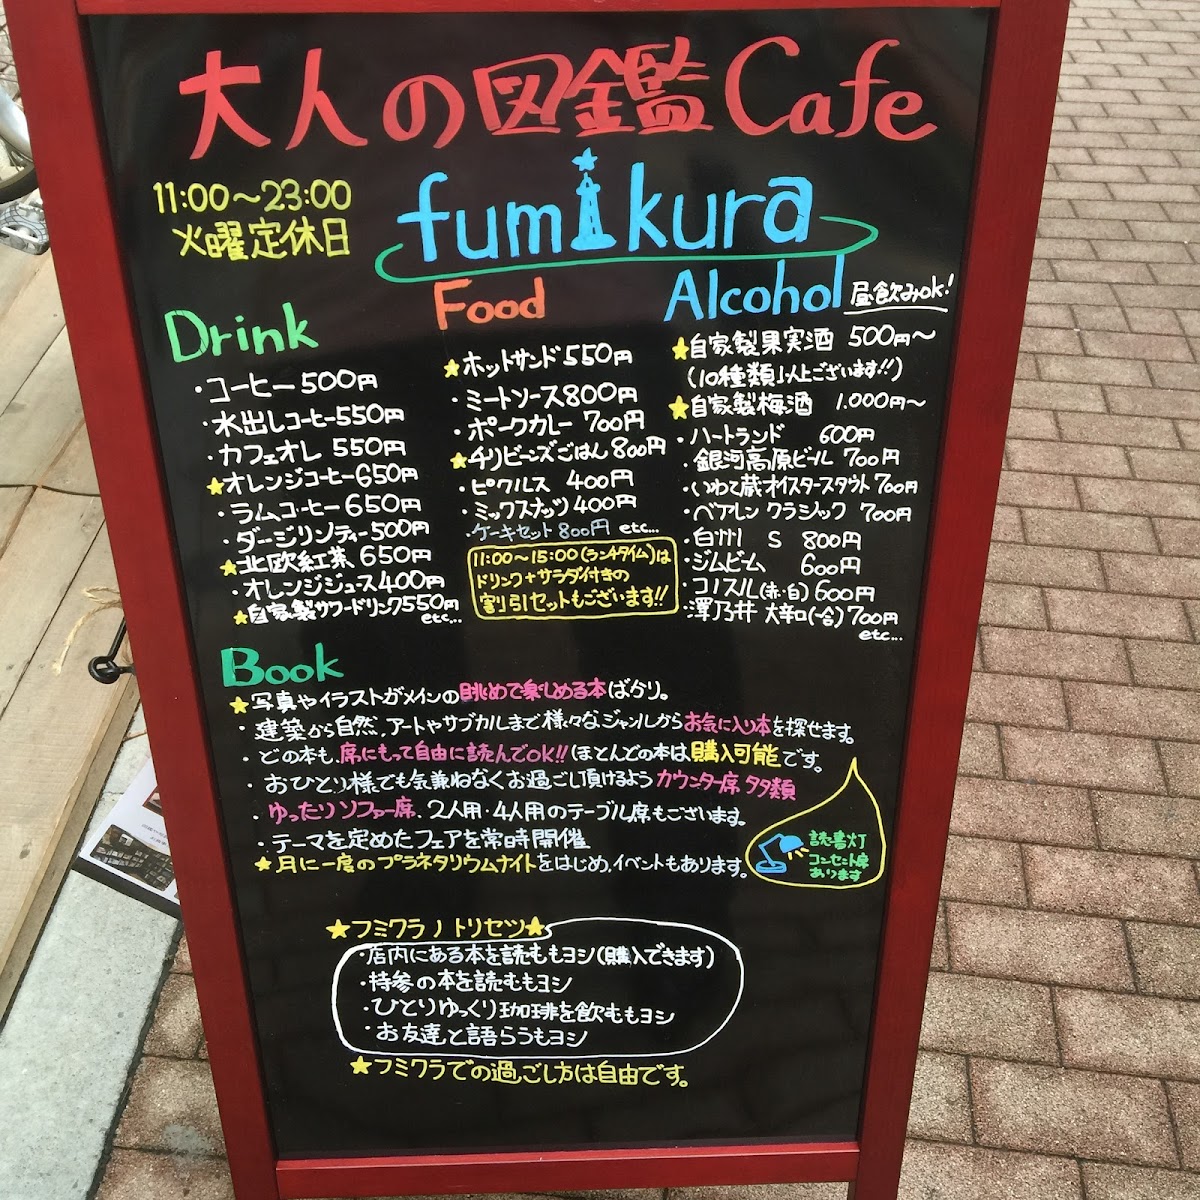 大人の図鑑Cafe
11:00〜23:00
火曜定休日
fumikura
Drink
・コーヒー 500円
・水出しコーヒー 550円
・カフェオレ 550円
★オレンジコーヒー 650円
・ラムコーヒー 650円
・ダージリンティー 500円
★北欧紅茶 650円
・オレンジジュース 400円
★自家製サワードリンク 550円
etc...
Food
★ホットサンド 550円
・ミートソース 800円
・ポークカレー 700円
★チリビーンズごはん 800円
・ピクルス 400円
・ミックスナッツ 400円
・ケーキセット 800円 etc...
11:00〜15:00(ランチタイム)は
ドリンク+サラダ付きの
割引セットもございます!!
Alcohol 昼飲みok!
★自家製果実酒 500円〜
(10種類以上ございます!!)
★自家製梅酒 1.000円〜
・ハートランド 600円
・銀河高原ビール 700円
・いわて蔵オイスタースタウト 700円
・ベアレン クラシック 700円
・白州 S 800円
・ジムビーム 600円
・コノスル(赤・白) 600円
・澤乃井 大辛口(一合) 700円
etc...
Book
★写真やイラストがメインの眺めて楽しめる本ばかり。
・建築から自然、アートやサブカルまで様々なジャンルからお気に入り本を探せます。
・どの本も、席にもって自由に読んでOK!!ほとんどの本は購入可能です。
・おひとり様でも気兼ねなくお過ごし頂けるようカウンター席多数
・ゆったりソファー席、2人用・4人用のテーブル席もございます。
・テーマを定めたフェアを常時開催
★月に一度のプラネタリウムナイトをはじめ、イベントもあります。
読書灯
コンセント席
あります
★フミクラノトリセツ★
・店内にある本を読むもヨシ(購入できます)
・持参の本を読むもヨシ
・ひとりゆっくり珈琲を飲むもヨシ
・お友達と語らうもヨシ
★フミクラでの過ごし方は自由です。